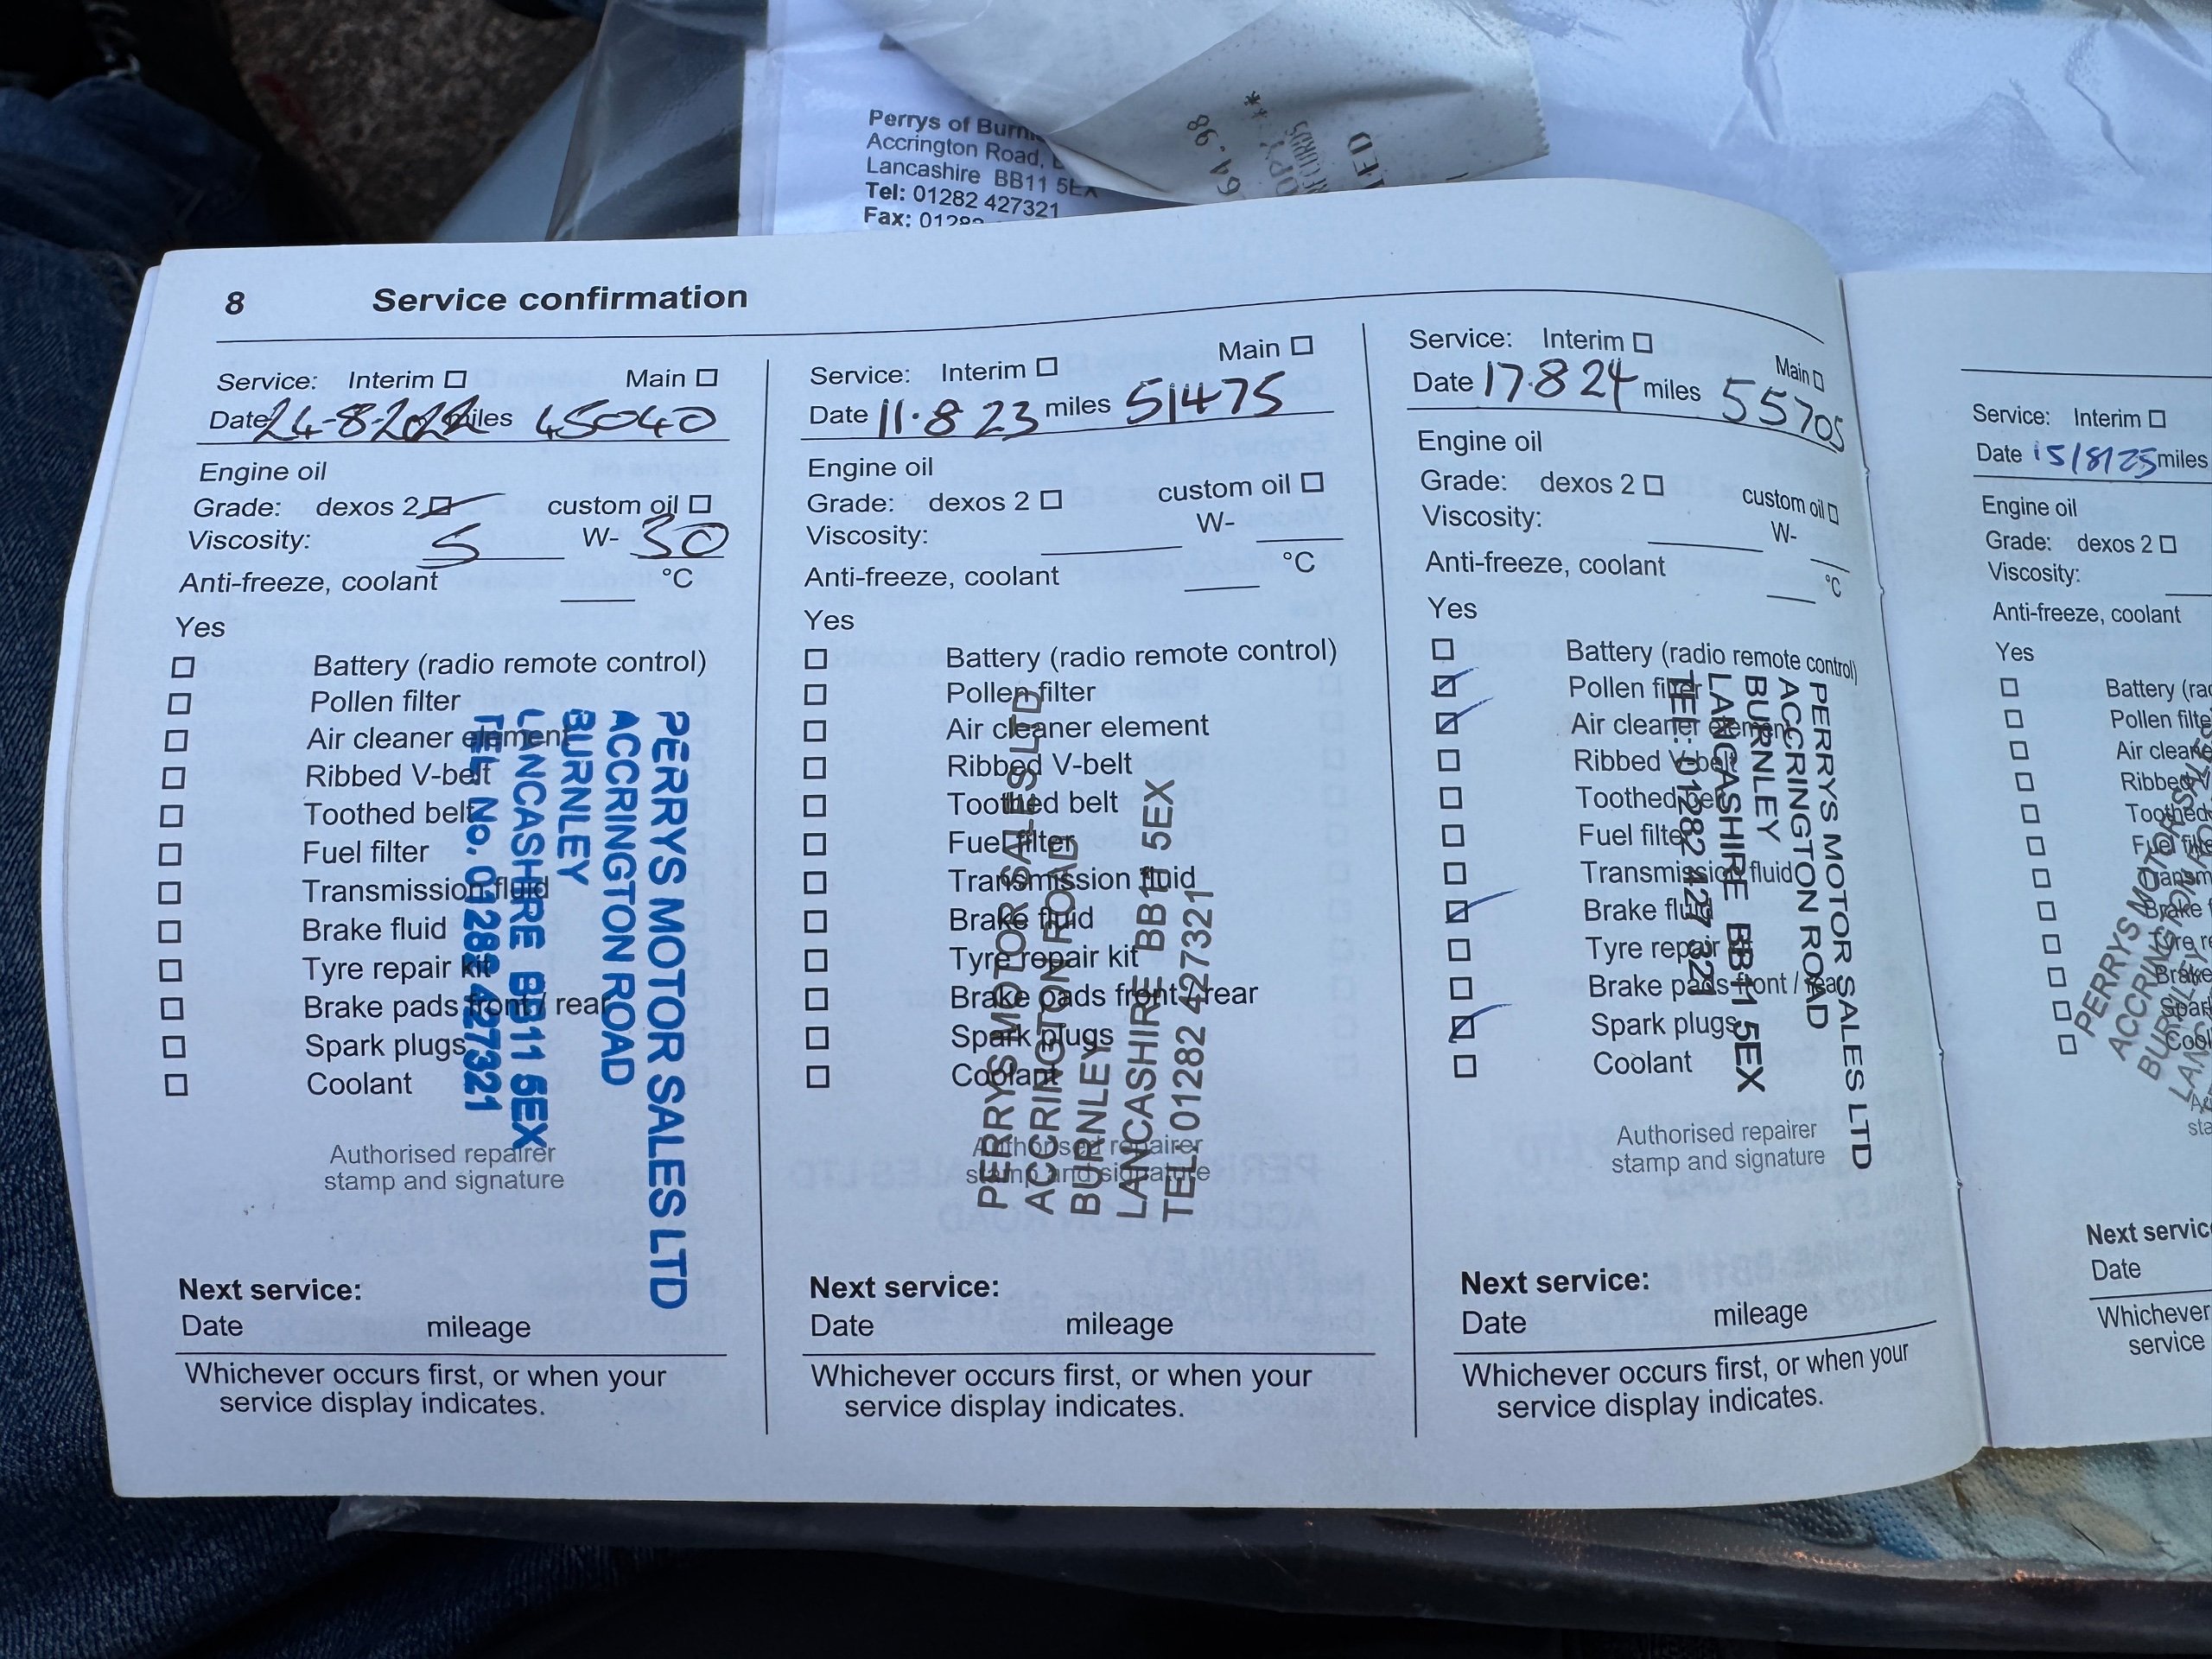 Perrys of
Accrington Road,
Lancashire BB11 5EX
Tel: 01282 427321
Fax:
64.98
**
8 Service confirmation
Service: Interim Main
Date 24-8-2022 miles 45040
Engine oil
Grade: dexos 2 custom oil
Viscosity: 5 W- 30
Anti-freeze, coolant °C
Yes
Battery (radio remote control)
Pollen filter
Air cleaner element
Ribbed V-belt
Toothed belt
Fuel filter
Transmission fluid
Brake fluid
Tyre repair kit
Brake pads front / rear
Spark plugs
Coolant
Authorised repairer
stamp and signature
PERRYS MOTOR SALES LTD
ACCRINGTON ROAD
BURNLEY
LANCASHIRE BB11 5EX
TEL No. 01282 427321
Next service:
Date mileage
Whichever occurs first, or when your
service display indicates.
Service: Interim Main
Date 11.8 23 miles 51475
Engine oil
Grade: dexos 2 custom oil
Viscosity: W-
Anti-freeze, coolant °C
Yes
Battery (radio remote control)
Pollen filter
Air cleaner element
Ribbed V-belt
Toothed belt
Fuel filter
Transmission fluid
Brake fluid
Tyre repair kit
Brake pads front / rear
Spark plugs
Coolant
Authorised repairer
stamp and signature
PERRYS MOTOR SALES LTD
ACCRINGTON ROAD
BURNLEY
LANCASHIRE BB11 5EX
TEL: 01282 427321
Next service:
Date mileage
Whichever occurs first, or when your
service display indicates.
Service: Interim Main
Date 17.8 24 miles 55705
Engine oil
Grade: dexos 2 custom oil
Viscosity: W-
Anti-freeze, coolant °C
Yes
Battery (radio remote control)
Pollen filter
Air cleaner element
Ribbed V-belt
Toothed belt
Fuel filter
Transmission fluid
Brake fluid
Tyre repair kit
Brake pads front / rear
Spark plugs
Coolant
PERRYS MOTOR SALES LTD
ACCRINGTON ROAD
BURNLEY
LANCASHIRE BB11 5EX
TEL: 01282 427 321
Authorised repairer
stamp and signature
Next service:
Date mileage
Whichever occurs first, or when your
service display indicates.
Service: Interim
Date 15/8/25 miles
Engine oil
Grade: dexos 2
Viscosity:
Anti-freeze, coolant
Yes
Battery
Pollen
Air
Brake
PERRYS MOTOR SALES
ACCRINGTON ROAD
Next
Date
Whichever
service